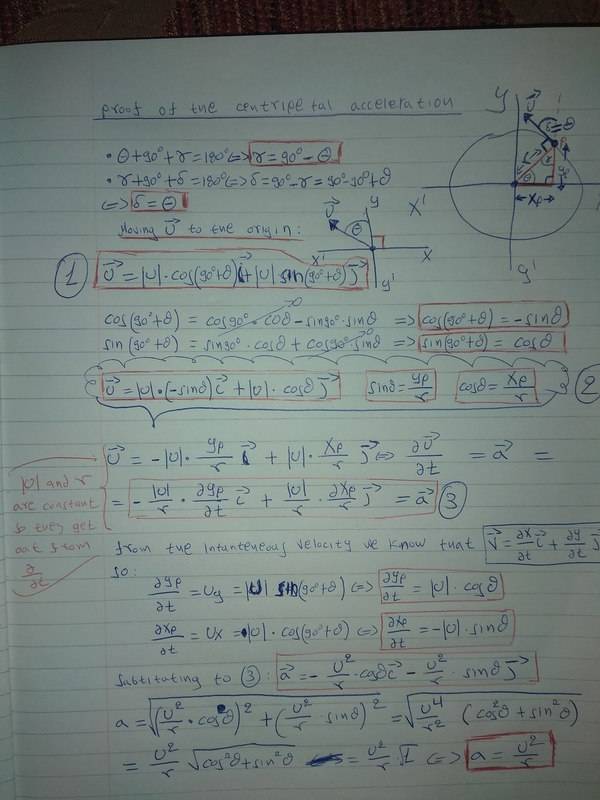 proof of the centripetal acceleration
• θ+90°+γ=180° <=> γ=90°-θ
• γ+90°+δ=180° <=> δ=90°-γ=90°-90°+θ
<=> δ=θ
Moving U⃗ to the origin:
y
U⃗
θ
x'
x
y'
y
U⃗
δ=θ
r
θ
yp
xp
x'
y'
① U⃗=|U|·cos(90°+θ)i⃗+|U|sin(90°+θ)j⃗
cos(90°+θ) = cos90°·cosθ-sin90°·sinθ => cos(90°+θ)=-sinθ
sin(90°+θ) = sin90°·cosθ+cos90°·sinθ => sin(90°+θ)=cosθ
U⃗=|U|·(-sinθ)i⃗+|U|·cosθj⃗ sinθ=yp/r cosθ=xp/r ②
U⃗=-|U|·yp/r i⃗ + |U|·xp/r j⃗ <=> ∂U⃗/∂t = a⃗ =
|U| and r
are constant
so they get
out from
∂/∂t
= -|U|/r · ∂yp/∂t i⃗ + |U|/r · ∂xp/∂t j⃗ = a⃗ ③
from the intanteneous velocity we know that V⃗=∂x/∂t i⃗+∂y/∂t j⃗
so:
∂yp/∂t = Uy = |U| sin(90°+θ) <=> ∂yp/∂t = |U|·cosθ
∂xp/∂t = Ux = |U|·cos(90°+θ) <=> ∂xp/∂t = -|U|·sinθ
Subtituting to ③: a⃗=-U²/r·cosθi⃗-U²/r·sinθj⃗
a=√((U²/r·cosθ)²+(U²/r sinθ)²)=√(U⁴/r² (cos²θ+sin²θ))
=U²/r √(cos²θ+sin²θ) =U²/r √1 <=> a=U²/r